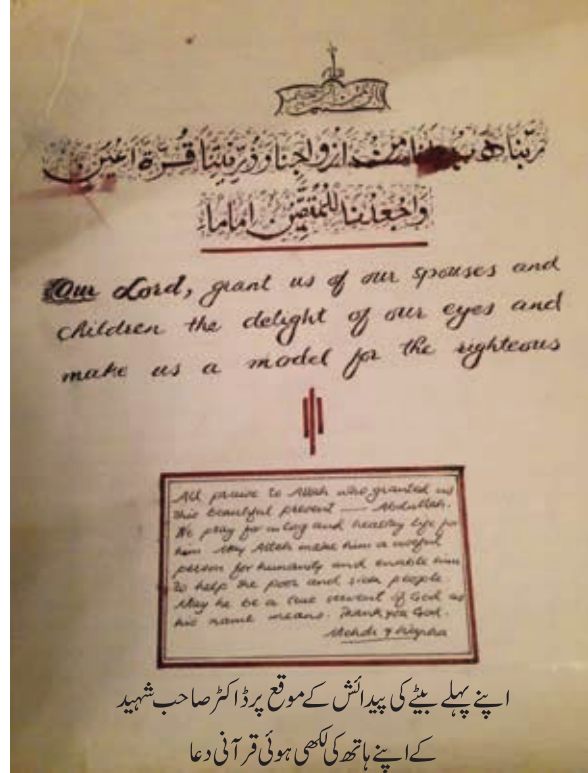 بسم الله الرحمن الرحيم
ربنا هب لنا من ازواجنا وذريتنا قرة اعين
واجعلنا للمتقين اماما
Our Lord, grant us of our spouses and
children the delight of our eyes and
make us a model for the righteous
All praise to Allah who granted us
this beautiful present — Abdullah.
We pray for a long and healthy life for
him. May Allah make him a useful
person for humanity and enable him
to help the poor and sick people.
May he be a true servent of God as
his name means. Thank you God.
Mehdi &
اپنے پہلے بیٹے کی پیدائش کے موقع پر ڈاکٹر صاحب شہید
کے اپنے ہاتھ کی لکھی ہوئی قرآنی دعا